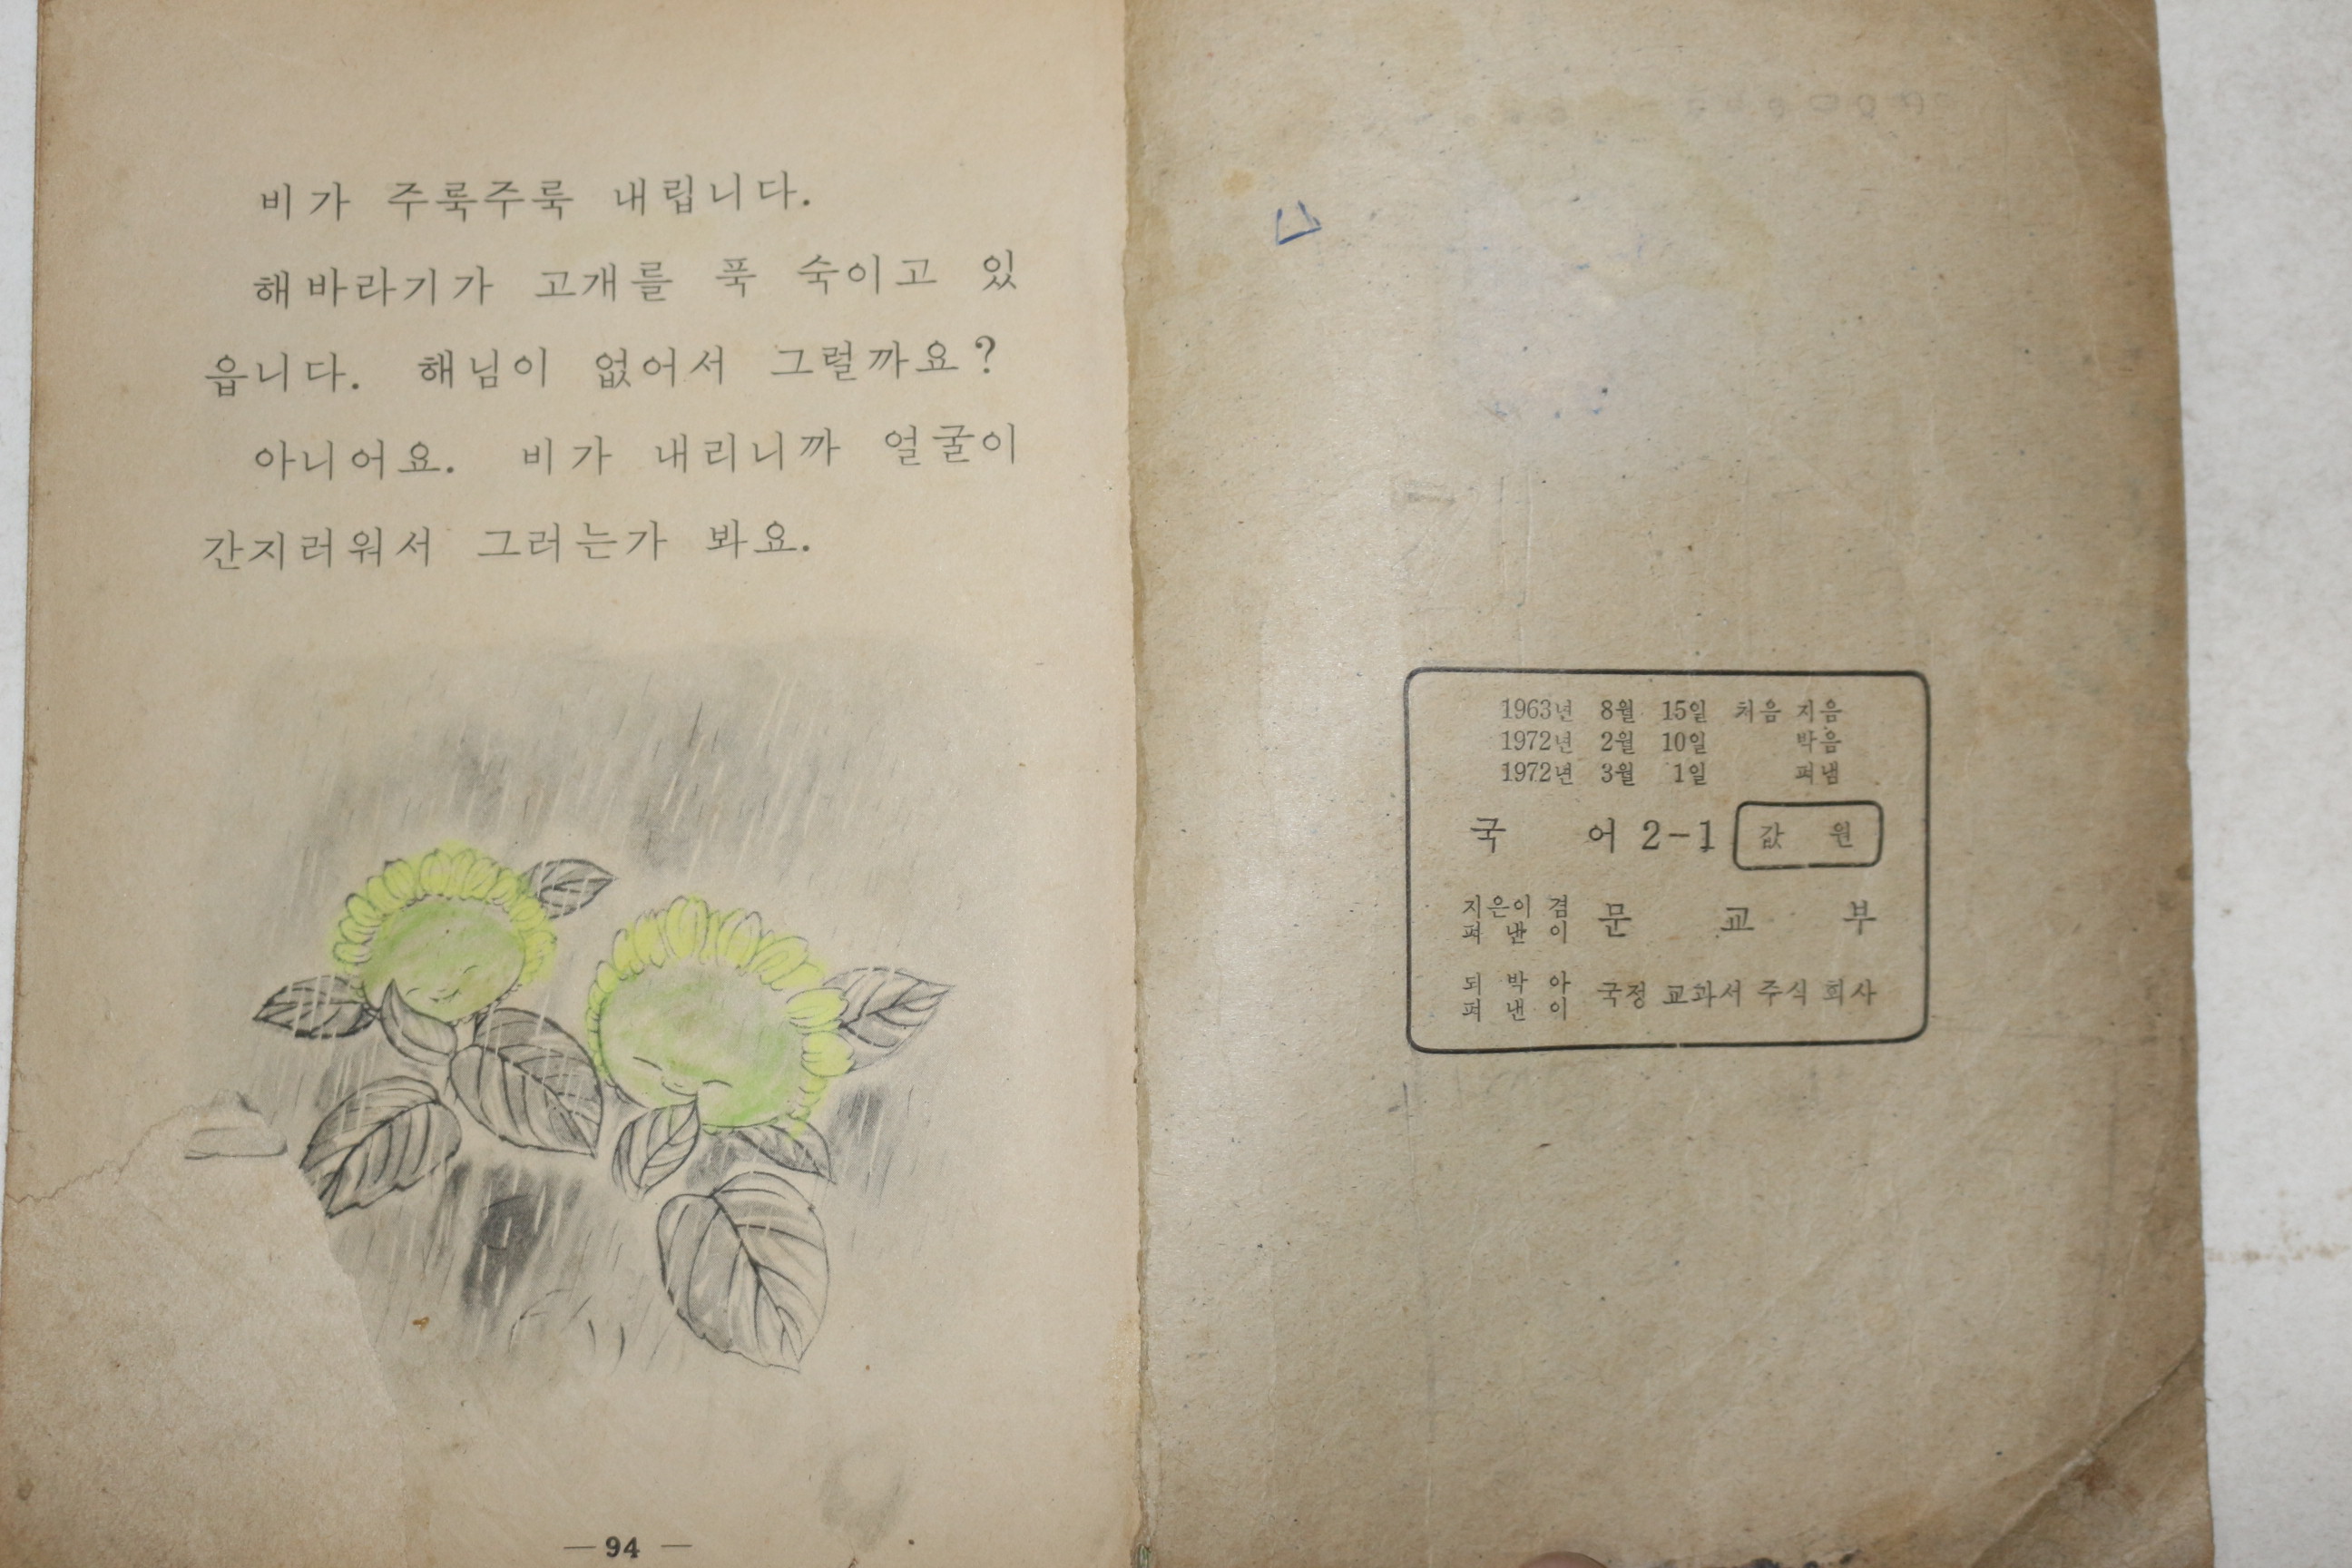 비가 주룩주룩 내립니다.
해바라기가 고개를 푹 숙이고 있
읍니다. 해님이 없어서 그럴까요?
아니어요. 비가 내리니까 얼굴이
간지러워서 그러는가 봐요.
—94—
1963년 8월 15일 처음 지음
1972년 2월 10일 박음
1972년 3월 1일 펴냄
국 어 2-1 값 원
지은이 겸
펴 낸 이 문 교 부
되 박 아
펴 낸 이 국정 교과서 주식 회사